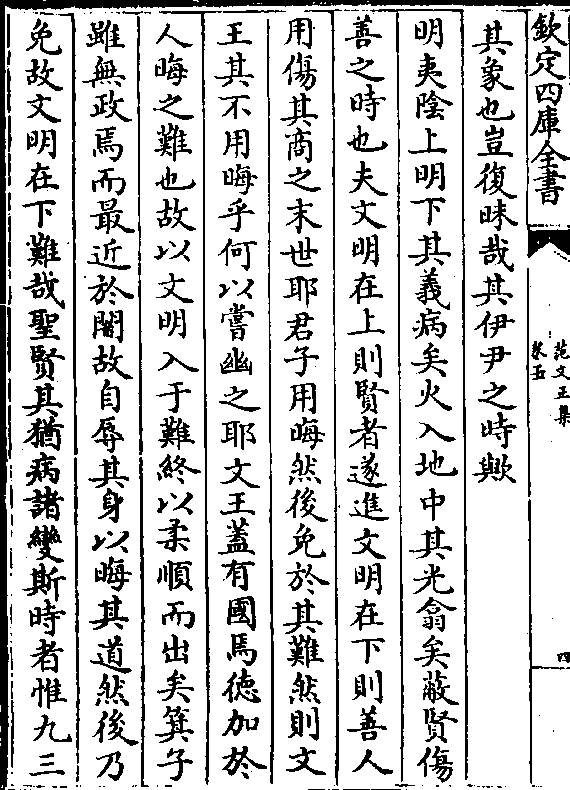 欽定四庫全書
范文正集
卷五
四
其象也豈復昧哉其伊尹之時歟
明夷陰上明下其義病矣火入地中其光翕矣蔽賢傷
善之時也夫文明在上則賢者遂進文明在下則善人
用傷其商之末世耶君子用晦然後免於其難然則文
王其不用晦乎何以嘗幽之耶文王蓋有國焉德加於
人晦之難也故以文明入于難終以柔順而出矣箕子
雖無政焉而最近於闇故自辱其身以晦其道然後乃
免故文明在下難哉聖賢其猶病諸變斯時者惟九三